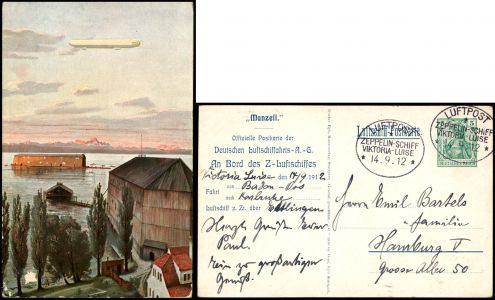 "Manzell."
Offizielle Postkarte der
Deutschen Luftschiffahrts-A.-G.
An Bord des Z-Luftschiffes
Victoria Luise 14/9 1912
von Baden-Oos
Fahrt
nach Karlsruhe
Luftschiff z. Zt. über Ettlingen
Herzl. Grüße
Paul.
LUFTPOST
ZEPPELIN-SCHIFF
VIKTORIA-LUISE
* 14.9.12 *
LUFTPOST
ZEPPELIN-SCHIFF
VIKTORIA-LUISE
5
Herrn Emil Bartels
Familie
Hamburg V
Grosse Allee 50